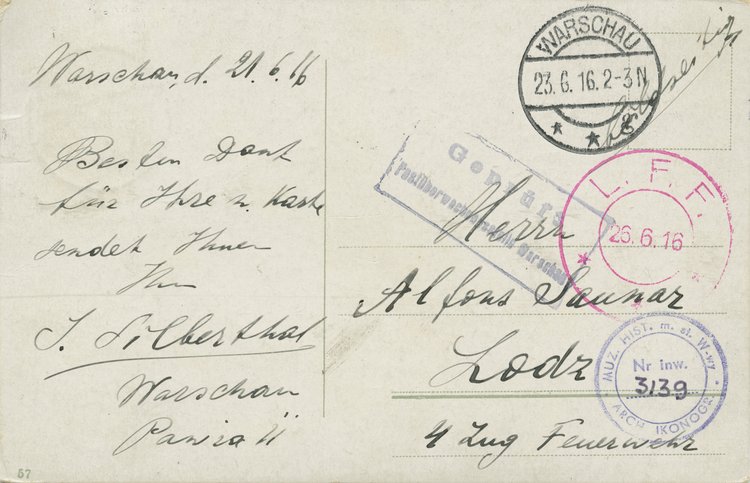 Warschau, d. 21.6.16
Besten Dank
für Ihre w. Karte
sendet Ihnen
Ihr
S. Silberthal
Warschau
WARSCHAU
23.6.16.2-3N
Geprüft
Postüberwachungsstelle Warschau
L. F. F.
26.6.16
Herrn
Alfons Saunar
Lodz
4 Zug Feuerwehr
MUZ. HIST. m. st. W-wy
Nr inw.
3139
ARCH. IKONOGR.
57